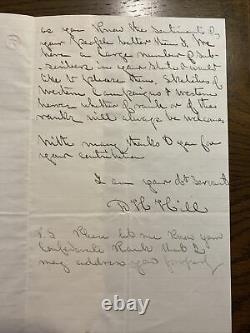 as you know the sentiments of
your people better than I. We
have a large number of sub-
scribers in your State & would
like to please them. Sketches of
Western Campaigns & Western
heroes whether of rank or of the
ranks will always be welcome
With many thanks to you for
your contribution
I am your obt Servant
D H Hill
P.S. Please let me know your
Confederate Rank that I
may address you properly